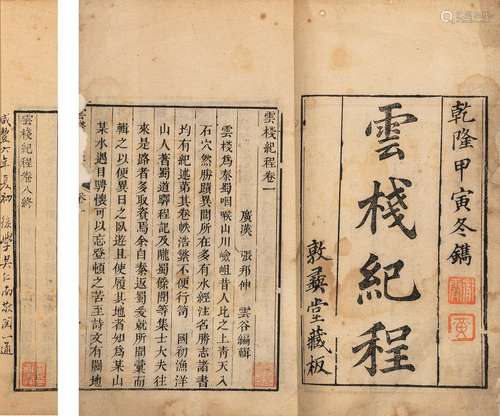 乾隆甲寅冬鐫
雲棧紀程
敦彝堂藏板
雲棧紀程卷一
廣漢 張邦伸 雲谷編輯
雲棧為秦蜀咽喉山川嶮岨昔人比之上青天入
石穴然勝蹟異聞所在多有水經注名勝志諸書
均有紀述第其卷帙浩繁不便行笥 國初漁洋
山人著蜀道驛程記及隴蜀餘聞等集士大夫往
來是路者多取資焉余自秦返蜀爰就所聞彙而
輯之以便異日之臥遊且使履其地者知為某山
某水遇目騁懷可以忘登頓之苦至詩文有關地
雲棧紀程卷八終
咸豐六年夏初 後學吳仁南敬閱一通